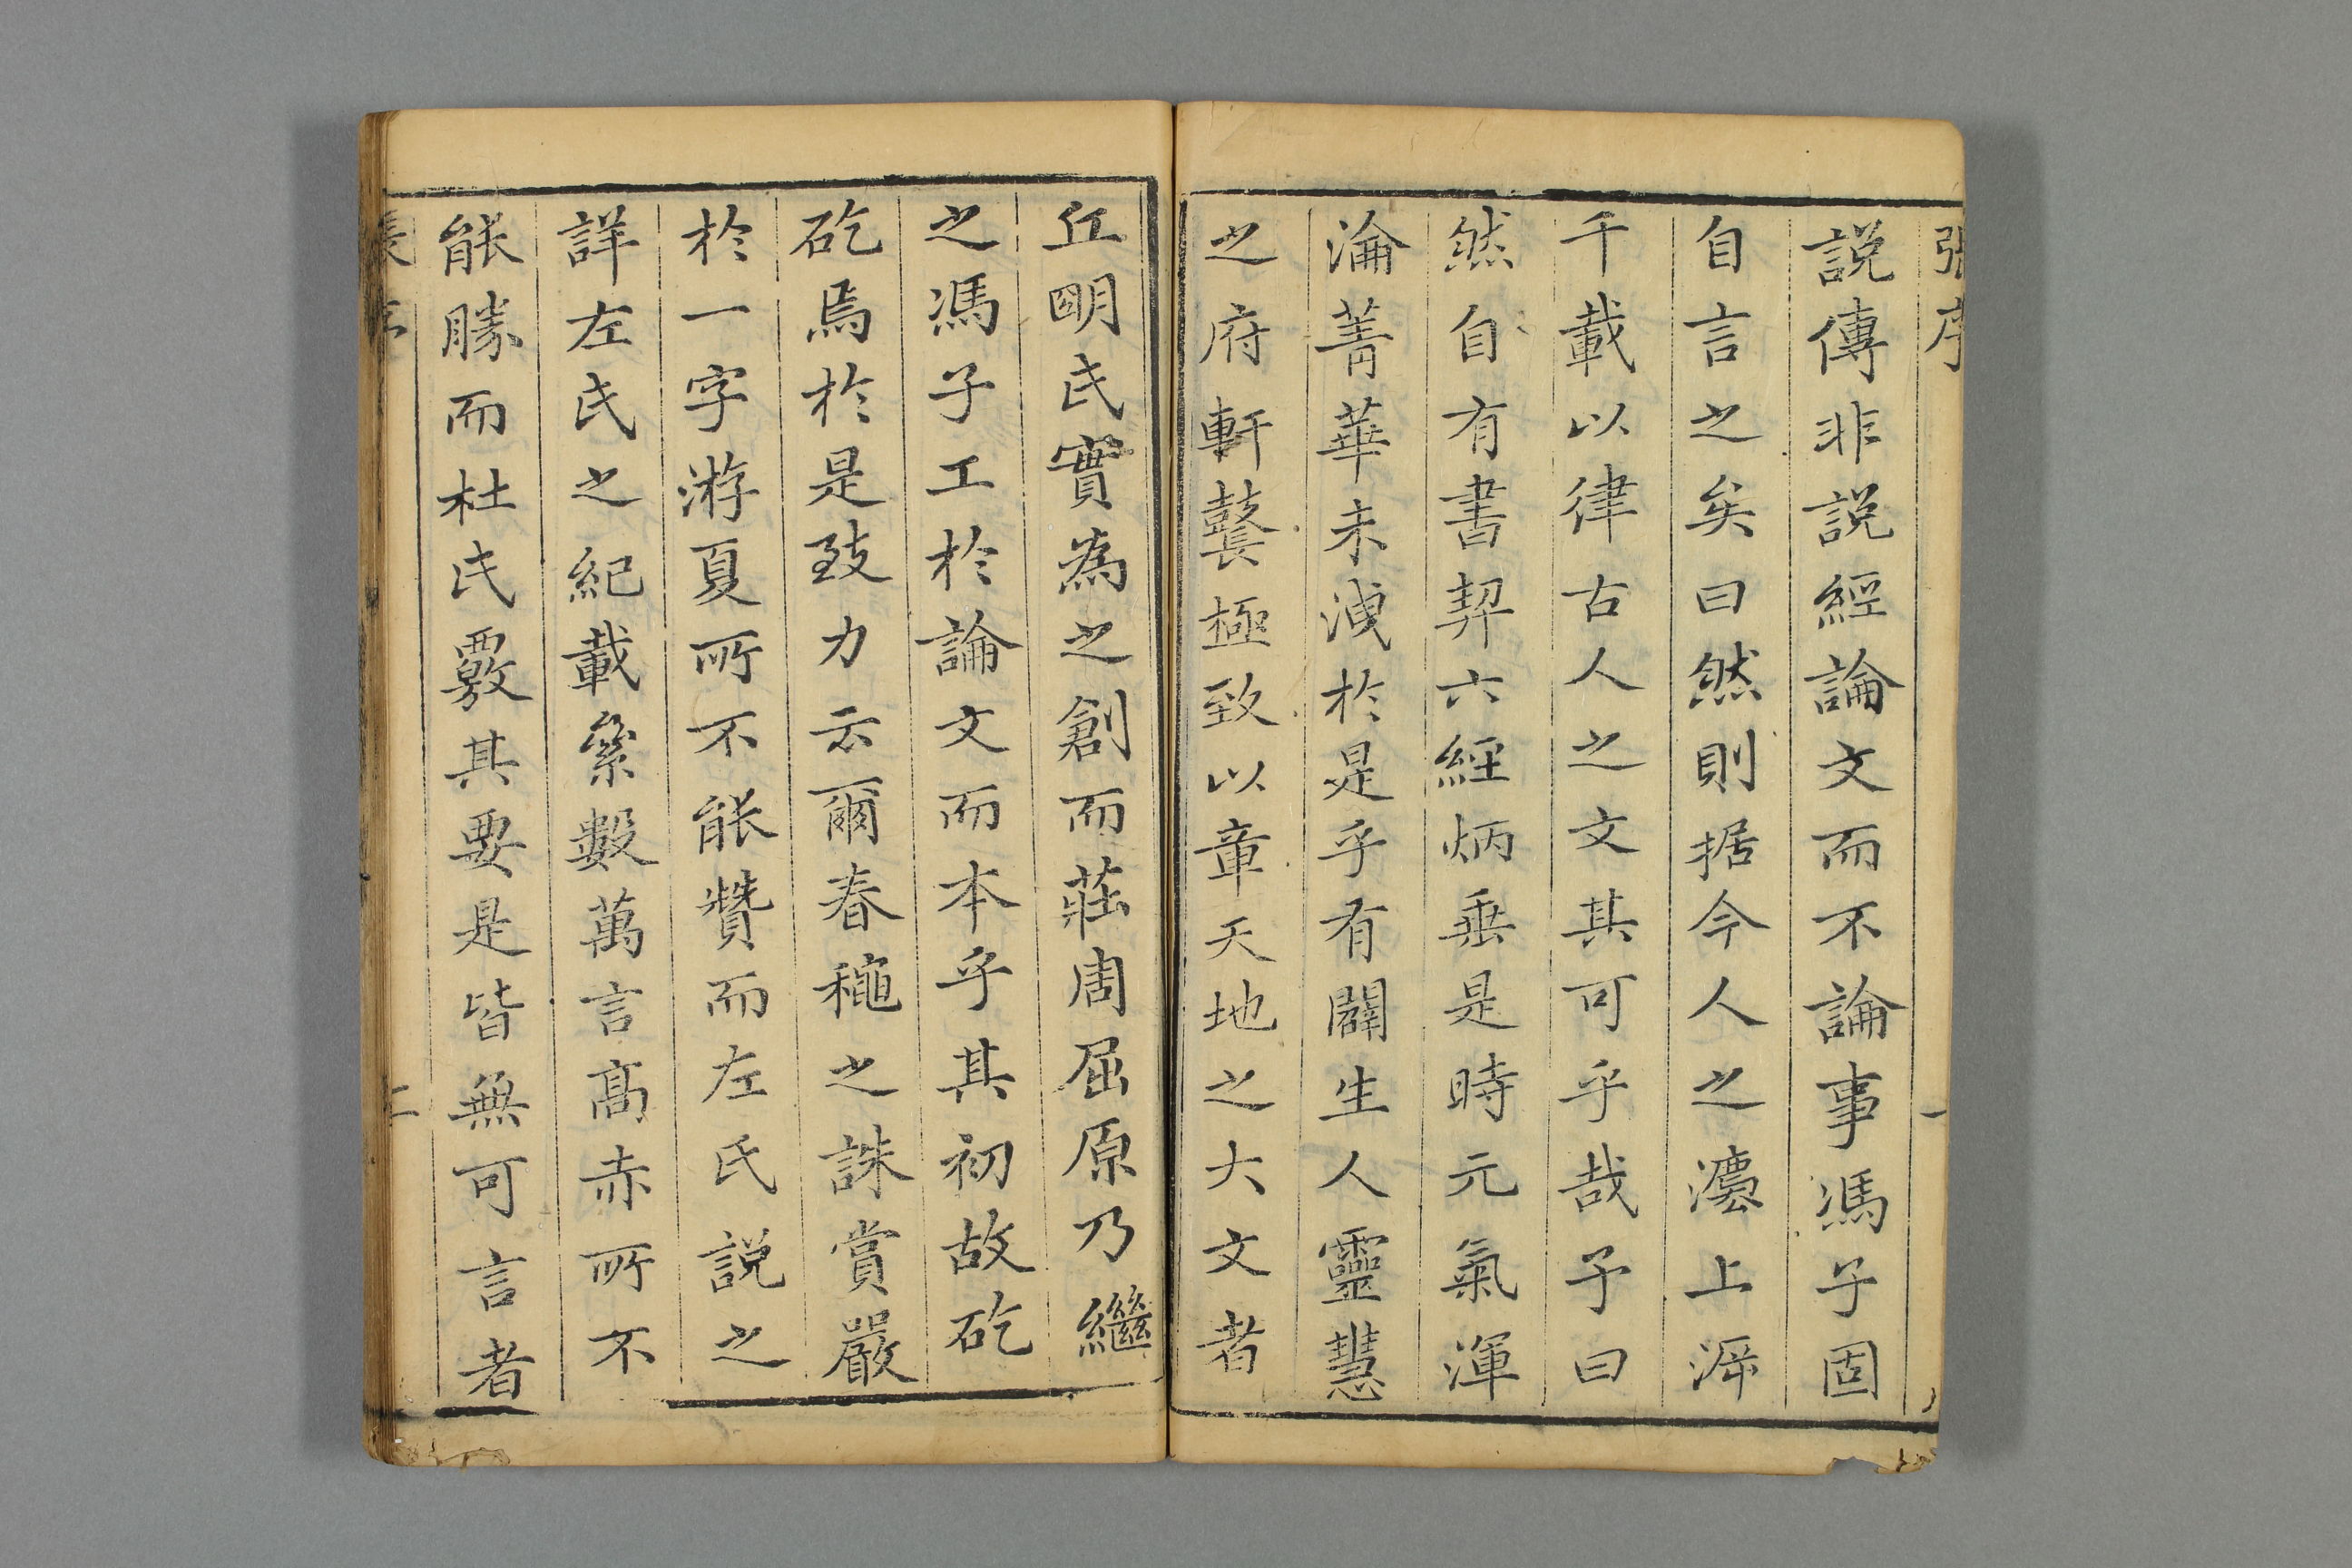 張序
一
說傳非說經論文而不論事馮子固
自言之矣曰然則据今人之灋上泝
千載以律古人之文其可乎哉予曰
然自有書契六經炳垂是時元氣渾
淪菁華未洩於是乎有闢生人靈慧
之府軒鼚極致以章天地之大文者
丘明氏實為之創而莊周屈原乃繼
之馮子工於論文而本乎其初故矻
矻焉於是致力云爾春穐之誅賞嚴
於一字游夏所不能贊而左氏說之
詳左氏之紀載纍數萬言高赤所不
能勝而杜氏覈其要是皆無可言者